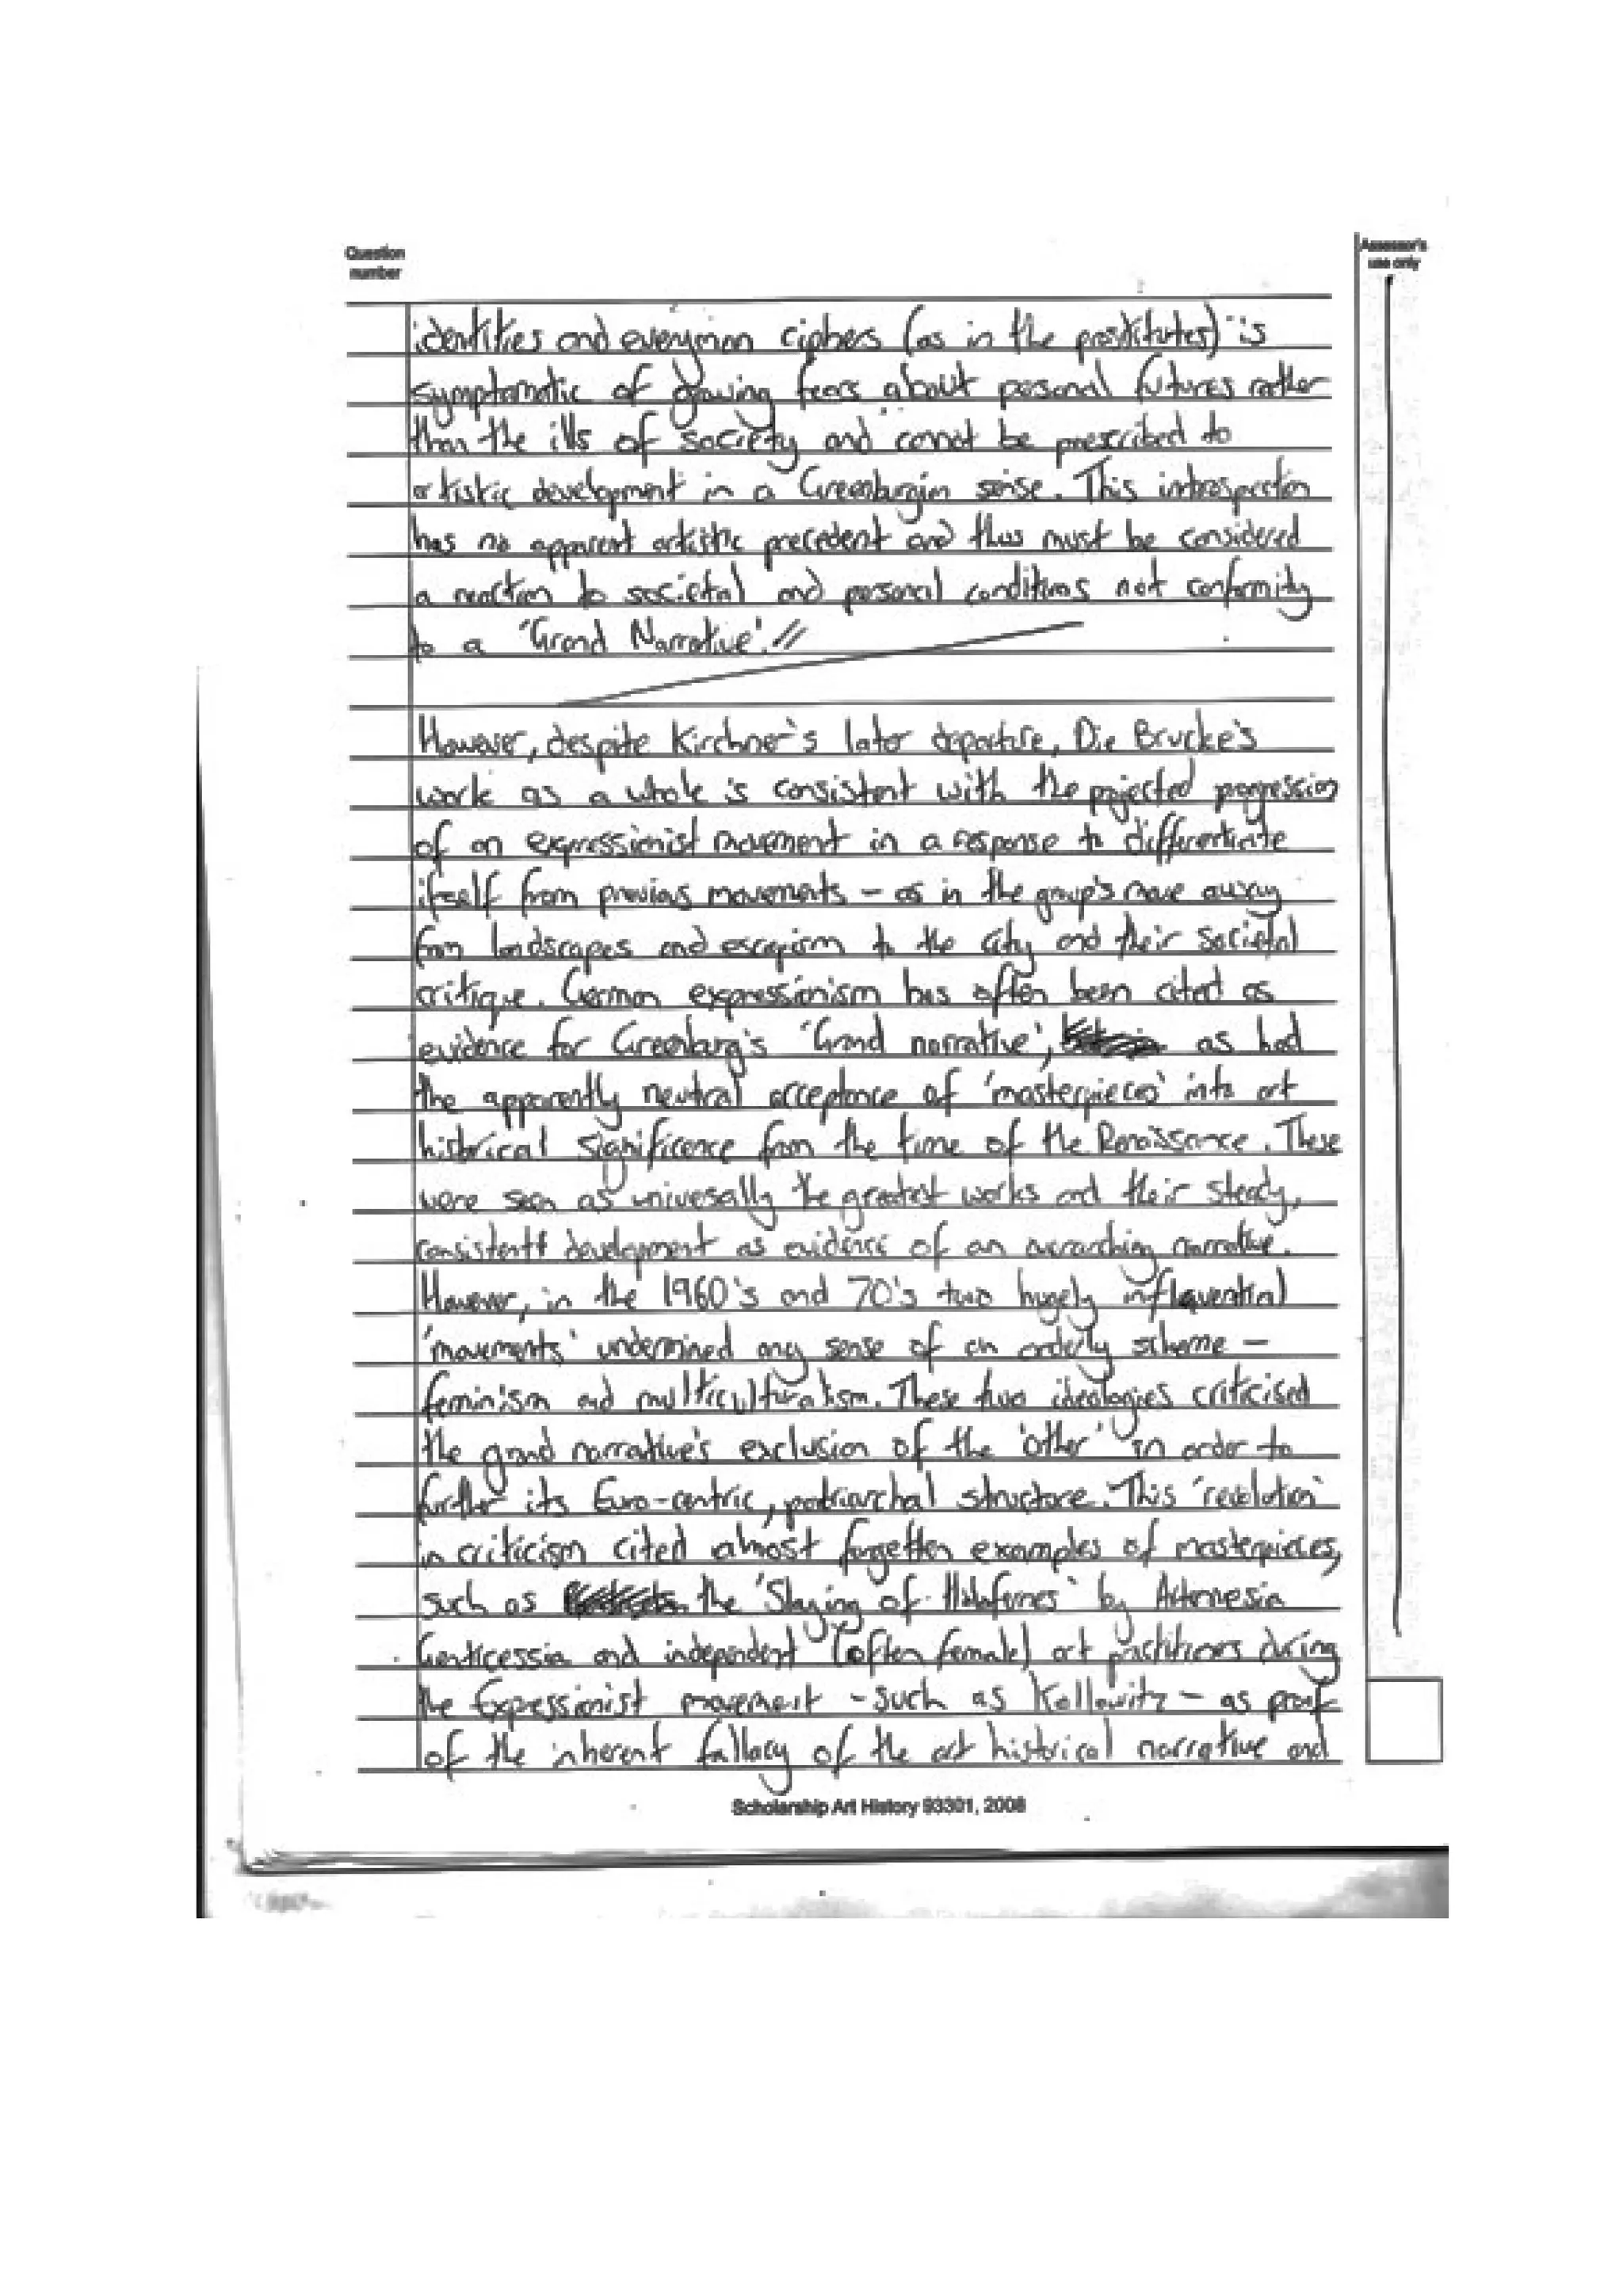 Question
number
Assessor's
use only
identities and everyman ciphers (as in the prostitutes) is
symptomatic of growing fears about personal futures rather
than the ills of society and cannot be prescribed to
artistic development in a Greenburgian sense. This introspection
has no apparent artistic precedent and thus must be considered
a reaction to societal and personal conditions not conformity
to a 'Grand Narrative'.//
However, despite Kirchner's later departure, Die Brucke's
work as a whole is consistent with the projected progression
of an expressionist movement in a response to differentiate
itself from previous movements – as in the group's move away
from landscapes and escapism to the city and their societal
critique. German expressionism has often been cited as
evidence for Greenburg's 'Grand narrative', as had
the apparently neutral acceptance of 'masterpieces' into art
historical significance from the time of the Renaissance. These
were seen as universally the greatest works and their steady,
consistent development as evidence of an overarching narrative.
However, in the 1960's and 70's two hugely influential
'movements' undermined any sense of an orderly scheme –
feminism and multiculturalism. These two ideologies criticised
the grand narrative's exclusion of the 'other' in order to
further its Euro-centric, patriarchal structure. This 'revolution'
in criticism cited almost forgotten examples of masterpieces,
such as the 'Slaying of Holofernes' by Artemesia
Genticessia and independent (often female) art practitioners during
the Expressionist movement – such as Kollowitz – as proof
of the inherent fallacy of the art historical narrative and
Scholarship Art History 93301, 2008